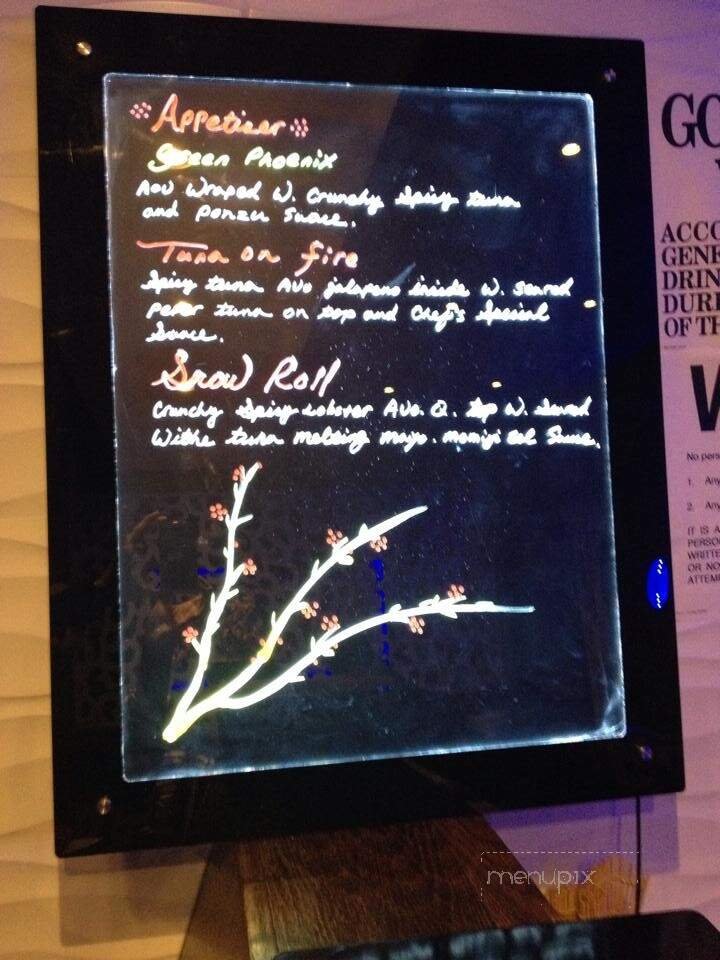 Appetizer
Green Phoenix
Avo Wraped W. Crunchy Spicy tuna
and ponzu Sauce.
Tuna on fire
Spicy tuna Avo jalapeno inside W. Seared
peper tuna on top and Chef's Special
Sauce.
Snow Roll
Crunchy Spicy Lobster Avo. Q. top W. Seared
Withe tuna melting mayo. momiji eel Sauce.
GO
ACCO
GENE
DRIN
DURI
OF TH
W
No pers
1. Any
2. Any
IT IS A
PERSO
WRITTE
OR NO
ATTEM
menupix